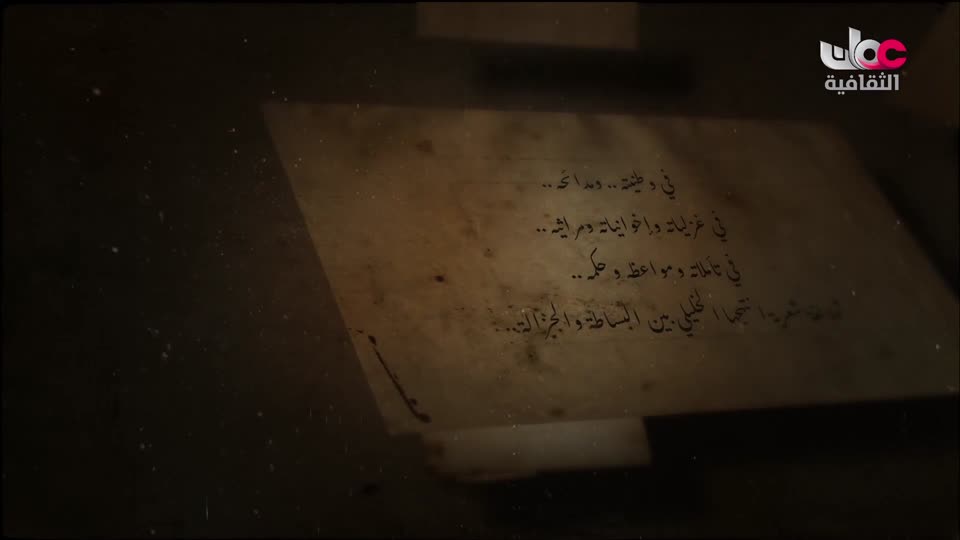 عمان
الثقافية
في وطنيته.. ومدائحه..
في غزلياته وإخوانياته ومراثيه..
في تأملاته ومواعظه وحكمه..
شعرية انتهجها الخليلي بين البساطة والجزالة..